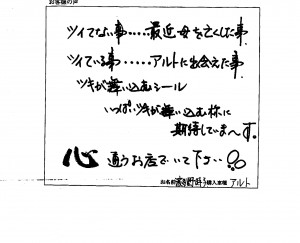 お客様の声
ツイてない事・・・・最近母を亡くした事
ツイている事・・・・・アルトに出会えた事
ツキが舞い込むシール
いっぱいツキが舞い込む様に
期待していま〜す。
心 通うお店でいて下さい
お名前 購入車種 アルト